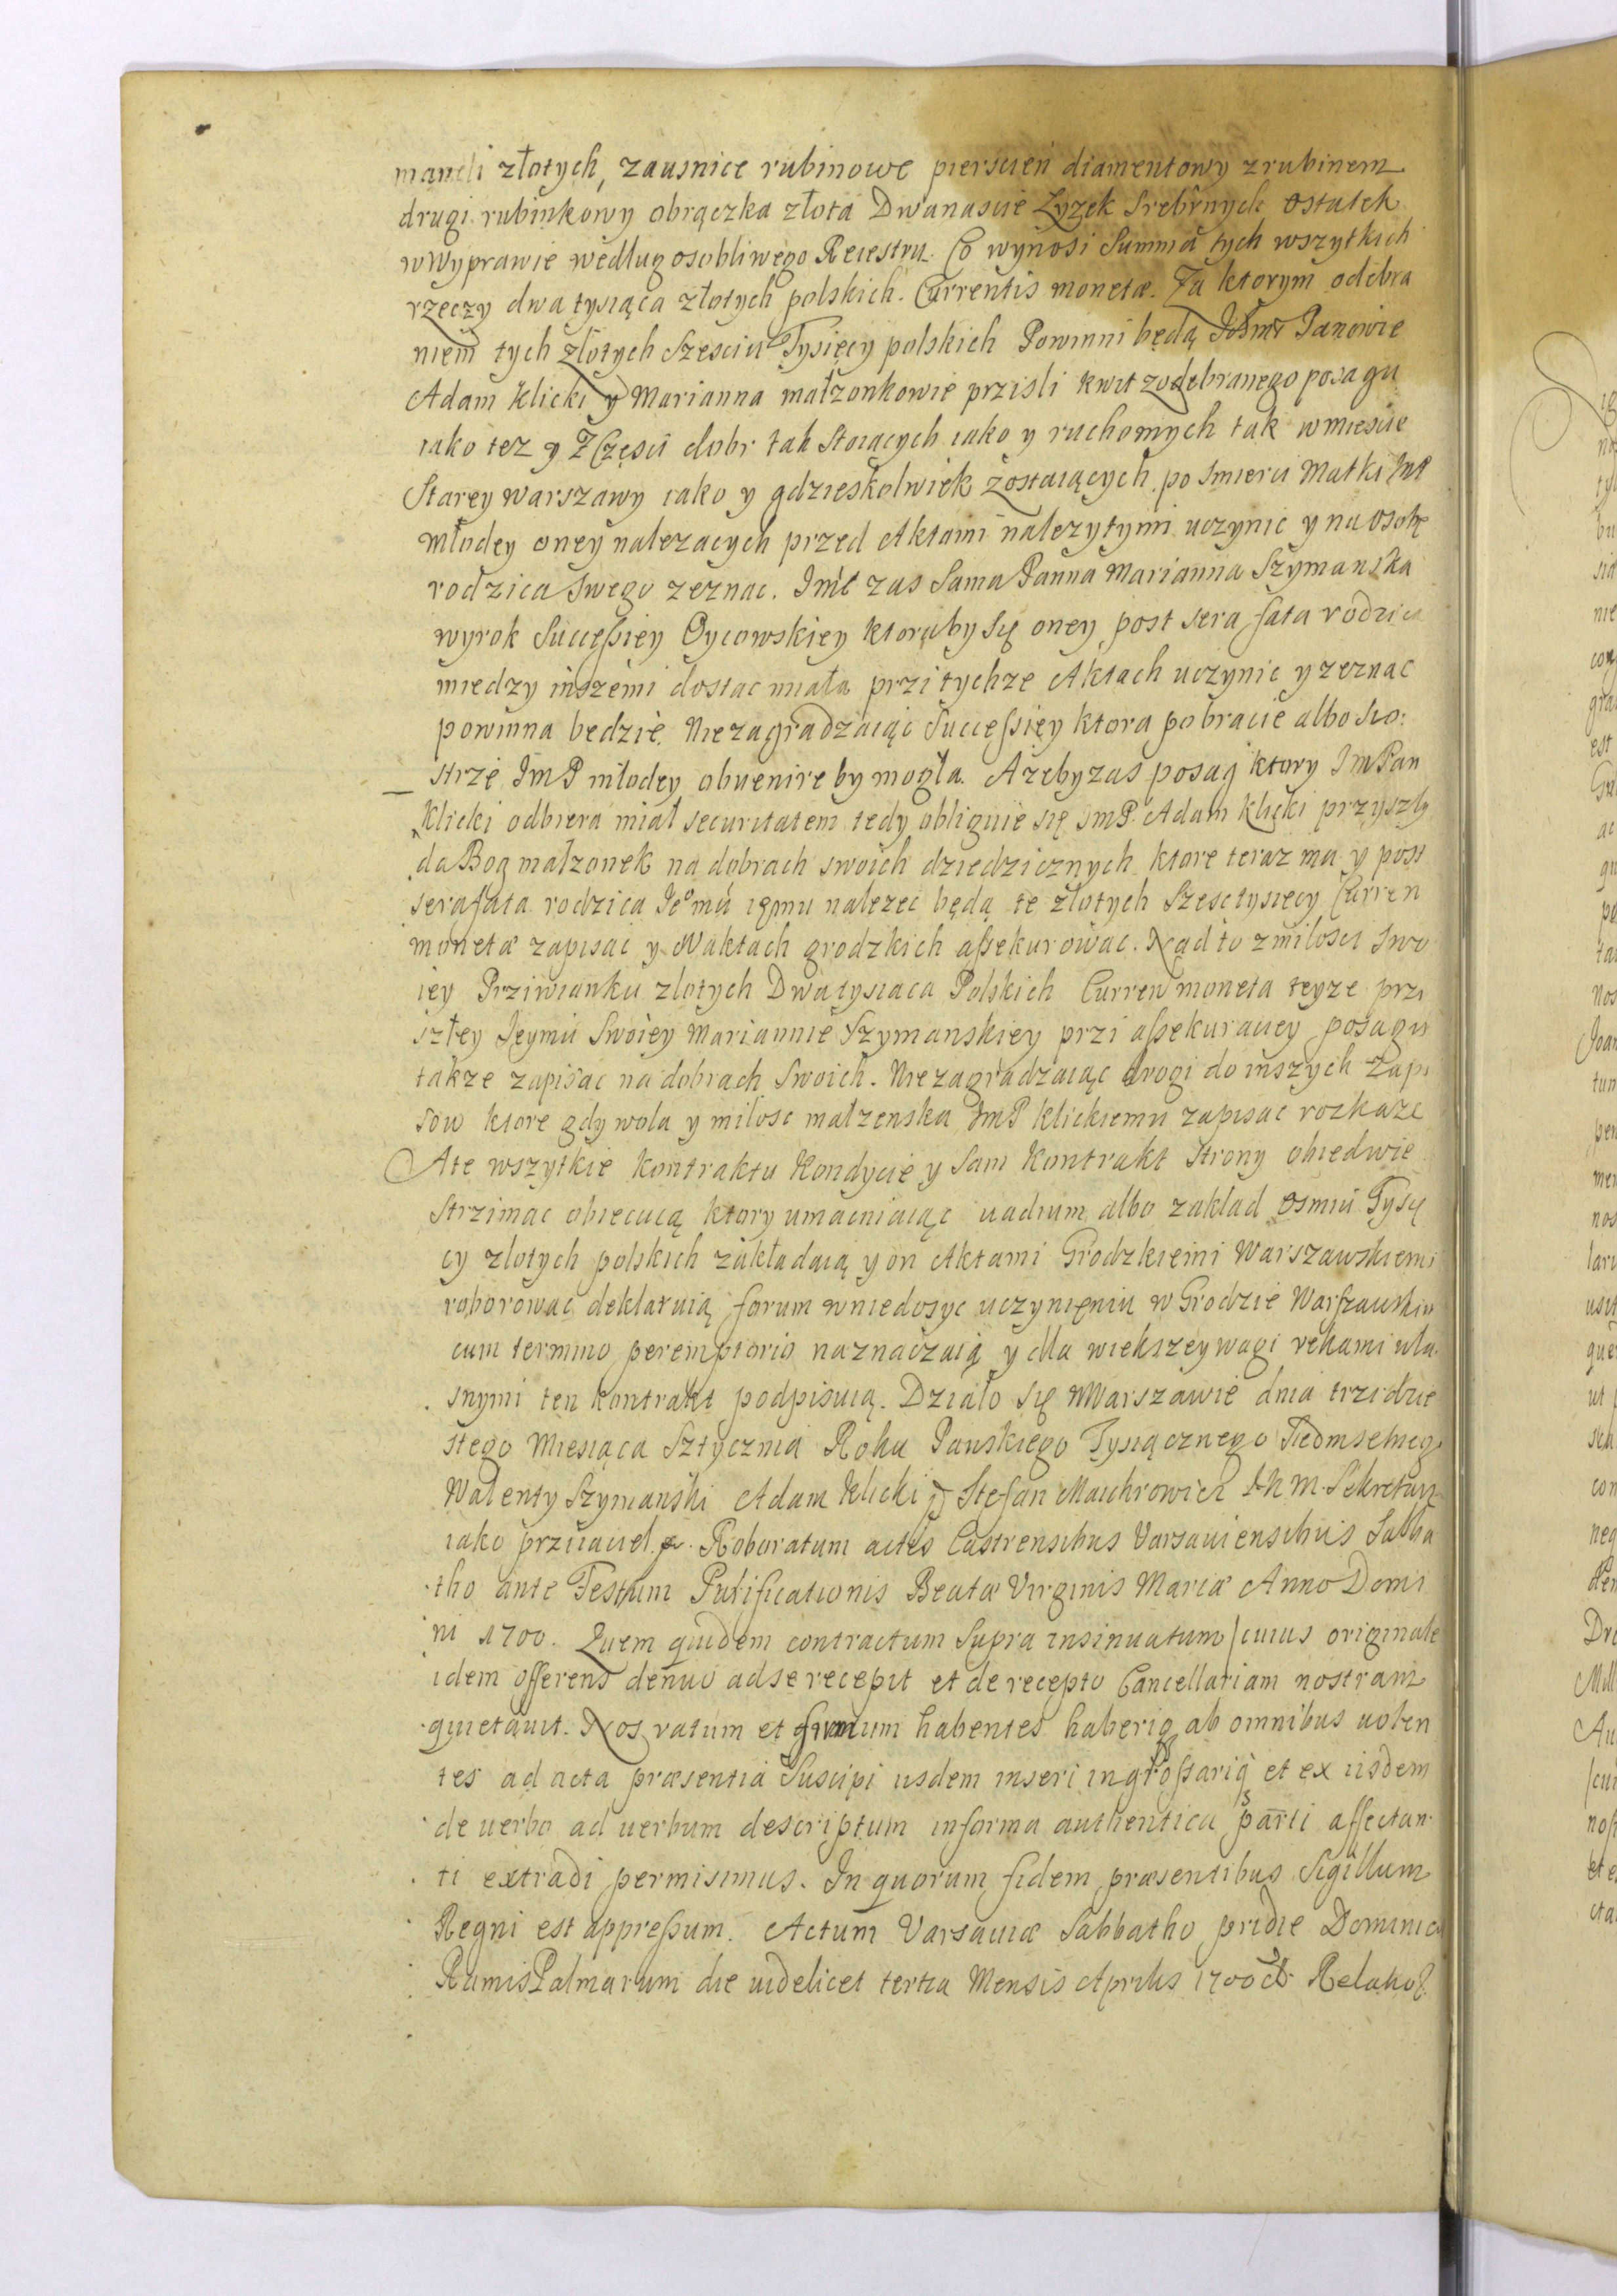 maneli złotych, zausnice rubinowe pierscień diamentowy z rubinem
drugi rubinkowy obrączka złota Dwanascie Łyzek Srebrnych ostatek
w Wyprawie według osobliwego Reiestru. Co wynosi Summa tych wszytkich
rzeczy dwa tysiąca złotych polskich. Currentis monetæ. Za ktorym odebra
niem tych złotych Szesciu Tysięcy polskich Powinni będą Panowie
Adam Klicki y Marianna małzonkowie przisli kwit z odebranego posagu
iako tez y z Częsci dobr tak stoiących iako y ruchomych tak w miescie
Starey warszawy iako y gdzieskolwiek zostaiących po smierci Matki
młodey oney nalezacych przed Aktami nalezytymi uczynic y na osobę
rodzica swego zeznac. Imć zas Sama Panna Marianna Szymanska
wyrok Successiey Oycowskiey ktoraby się oney post sera fata rodzica
miedzy inszemi dostac miała przi tychze Aktach uczynic y zeznac
powinna bedzie. Niezagradzaiąc Successiey ktora po bracie albo sio:
strze ImP młodey obvenire by mogła. Azeby zas posag ktory ImPan
Klicki odbiera miał securitatem tedy obliguie się ImP. Adam Klicki przyszły
da Bog małzonek na dobrach swoich dziedzicznych ktore teraz ma y post
sera fata rodzica nalezec będą te złotych Szesc tysięcy Curren
moneta zapisac y w Aktach grodzkich assekurowac. Nad to z miłosci swo
iey Prziwianku złotych Dwa tysiaca Polskich Curren moneta teyze przi
szłey Jeymć Swoiey Mariannie Szymanskiey przi assekuracyey posagu
takze zapisac na dobrach Swoich. Niezagradzaiąc drogi do inszych Zapi
sow ktore gdy wola y miłosc małzenska ImP Klickiemu zapisac rozkaze
A te wszytkie kontraktu Kondycie y sam Kontrakt strony obiedwie
strzimac obiecuią ktory umacniaiąc vadium albo zakład osmiu Tysię
cy złotych polskich zakładaią y on Aktami Grodzkiemi Warszawskiemi
roborowac deklaruią forum w niedosyc uczynieniu w Grodzie Warszawskim
cum termino peremptorio naznaczaią y dla wiekszey wagi rekami wła
snymi ten kontrakt podpisuią. Działo się w Warszawie dnia trzidzie
stego Miesiąca Sztycznia Roku Panskiego Tysiącznego Siedmsetnego
Walenty Szymanski Adam Klicki Stefan Maichrowicz J K M. Sekretarz
iako prziiaciel. Roboratum actis Castrensibus Varsaviensibus Sabba
tho ante Festum Purificationis Beatæ Virginis Mariæ Anno Domi
ni 1700. Quem quidem contractum supra insinuatum /cuius originale
idem offerens denuo ad se recepit et de recepto Cancellariam nostram
quietavit. Nos ratum et firmum habentes haberiq ab omnibus volen
tes ad acta præsentia Suscipi iisdem inseri ingrossariq et ex iisdem
de verbo ad verbum descriptum in forma authentica parti affectan
ti extradi permisimus. In quorum fidem præsentibus Sigillum
Regni est appressum. Actum Varsaviæ Sabbatho pridie Dominica
Ramis Palmarum die videlicet tertia Mensis Aprilis 1700